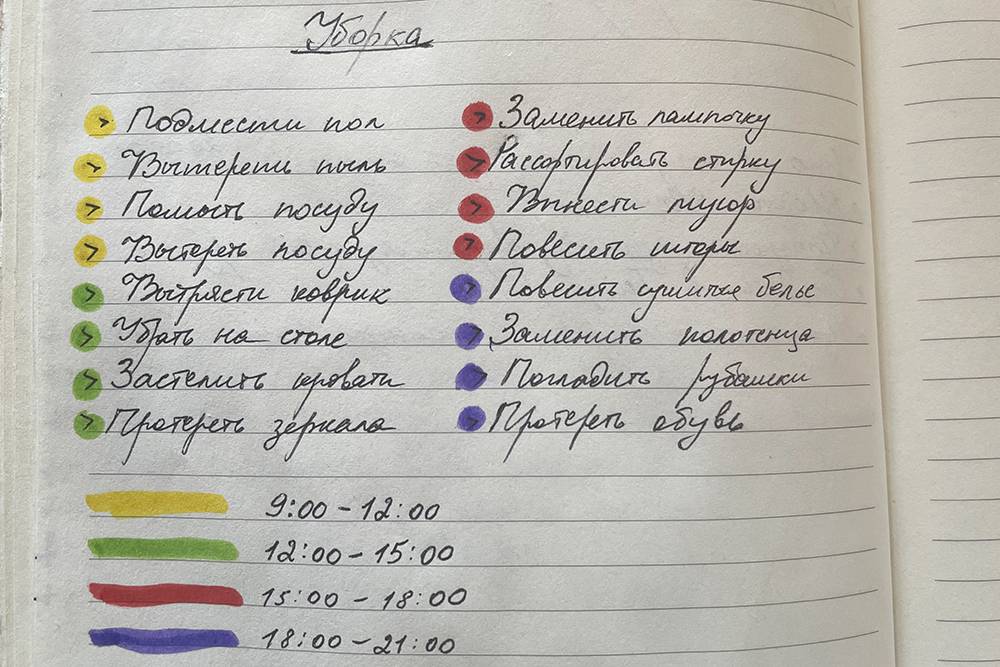 Уборка
> Подмести пол
> Вытереть пыль
> Помыть посуду
> Вытереть посуду
> Вытрясти коврик
> Убрать на столе
> Застелить кровати
> Протереть зеркала
> Заменить лампочку
> Рассортировать стирку
> Вынести мусор
> Повесить шторы
> Повесить сушиться белье
> Заменить полотенца
> Погладить рубашки
> Протереть обувь
9:00 - 12:00
12:00 - 15:00
15:00 - 18:00
18:00 - 21:00